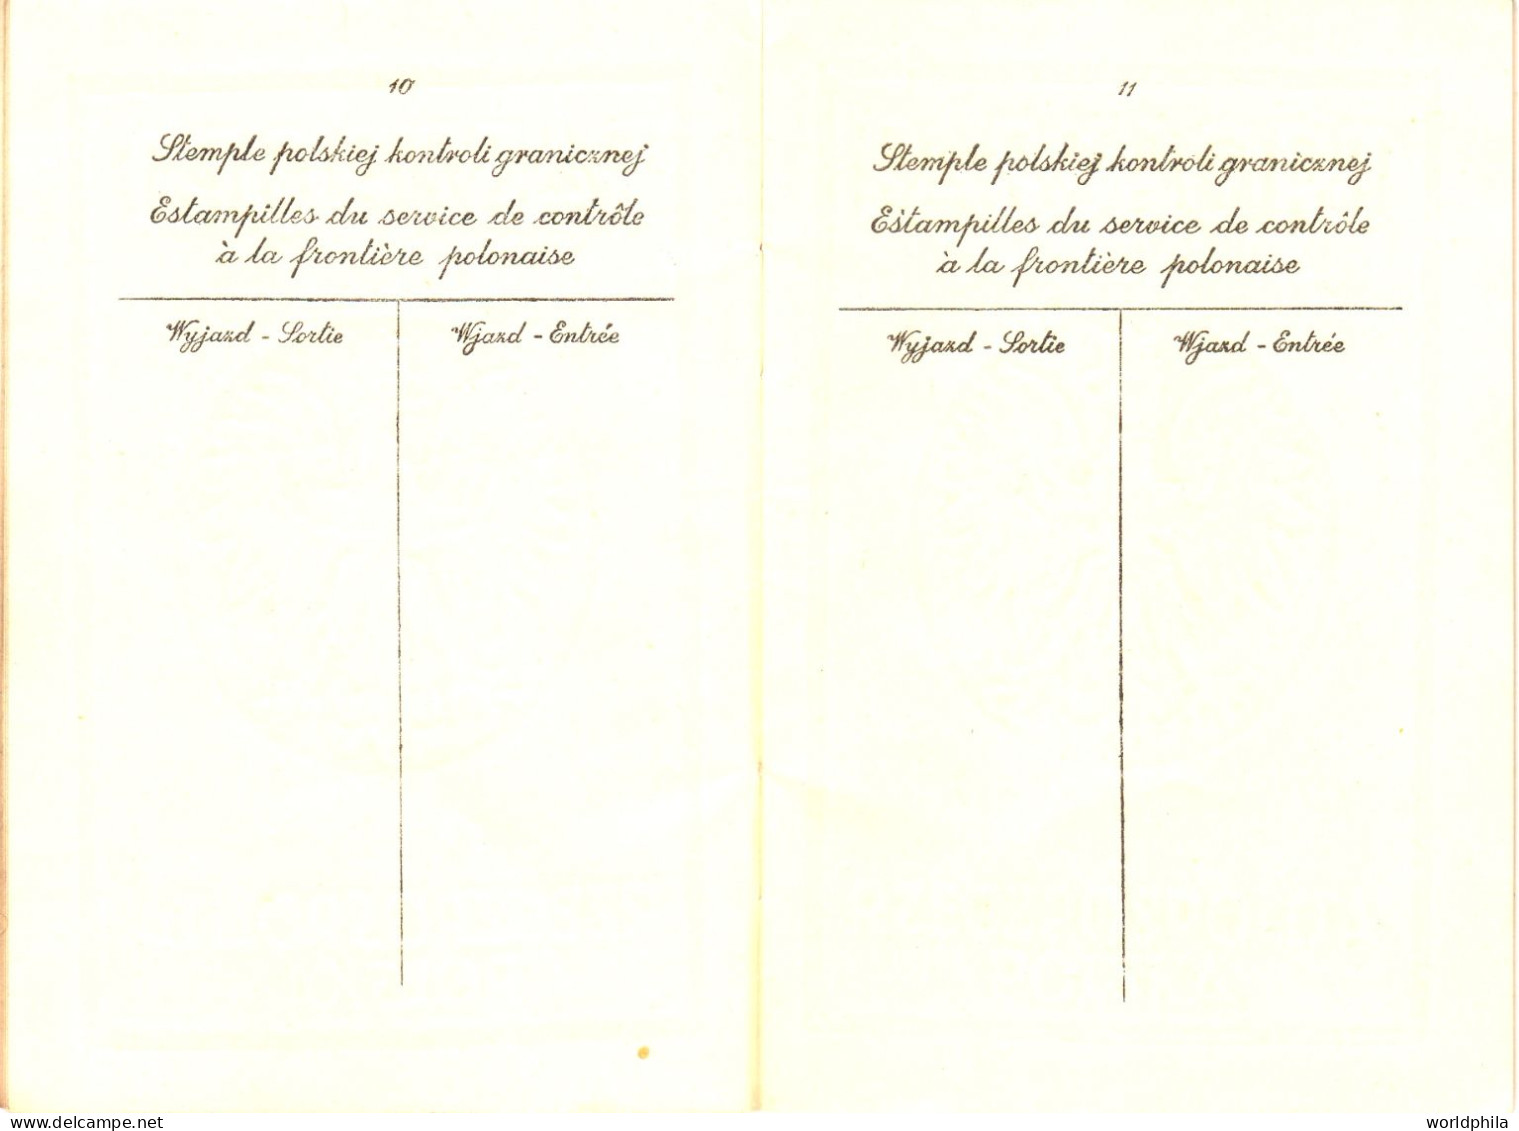 10
Stemple polskiej kontroli granicznej
Estampilles du service de contrôle
à la frontière polonaise
Wyjazd - Sortie
Wjazd - Entrée
11
Stemple polskiej kontroli granicznej
Estampilles du service de contrôle
à la frontière polonaise
Wyjazd - Sortie
Wjazd - Entrée
delcampe.net
worldphila